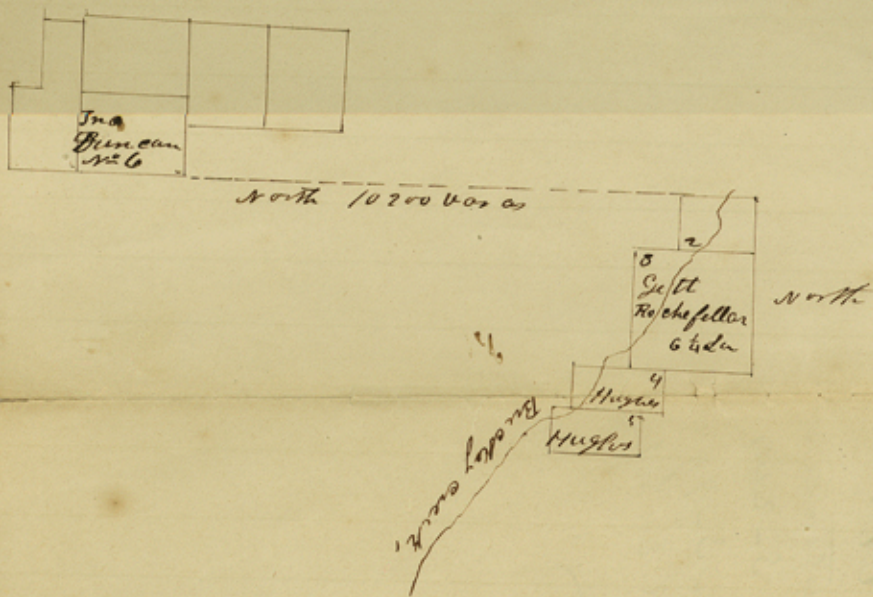 Jno
Duncan
No 6
North 10200 varas
2
3
Gett
Rochefellar
6 1/4 La
North
4
Hughes
5
Hughes
Brushy creek